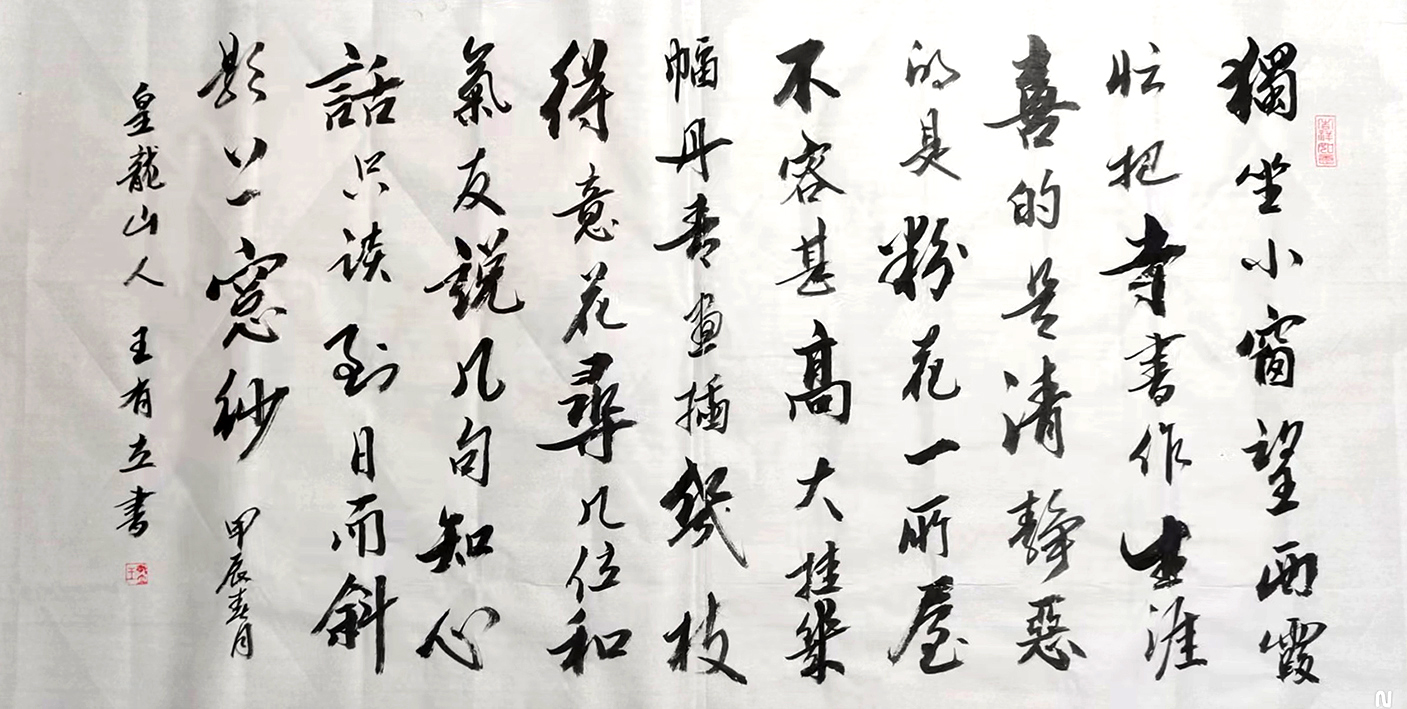 獨坐小窗望西霞
忙把寺書作生涯
喜的是清靜惡
的是粉花一所屋
不容甚高大挂幾
幅丹青畫插幾枝
得意花尋几位和
氣友説几句知心
話只談到日而斜
影上一窓紗 甲辰春月
皇龍山人 王有立書